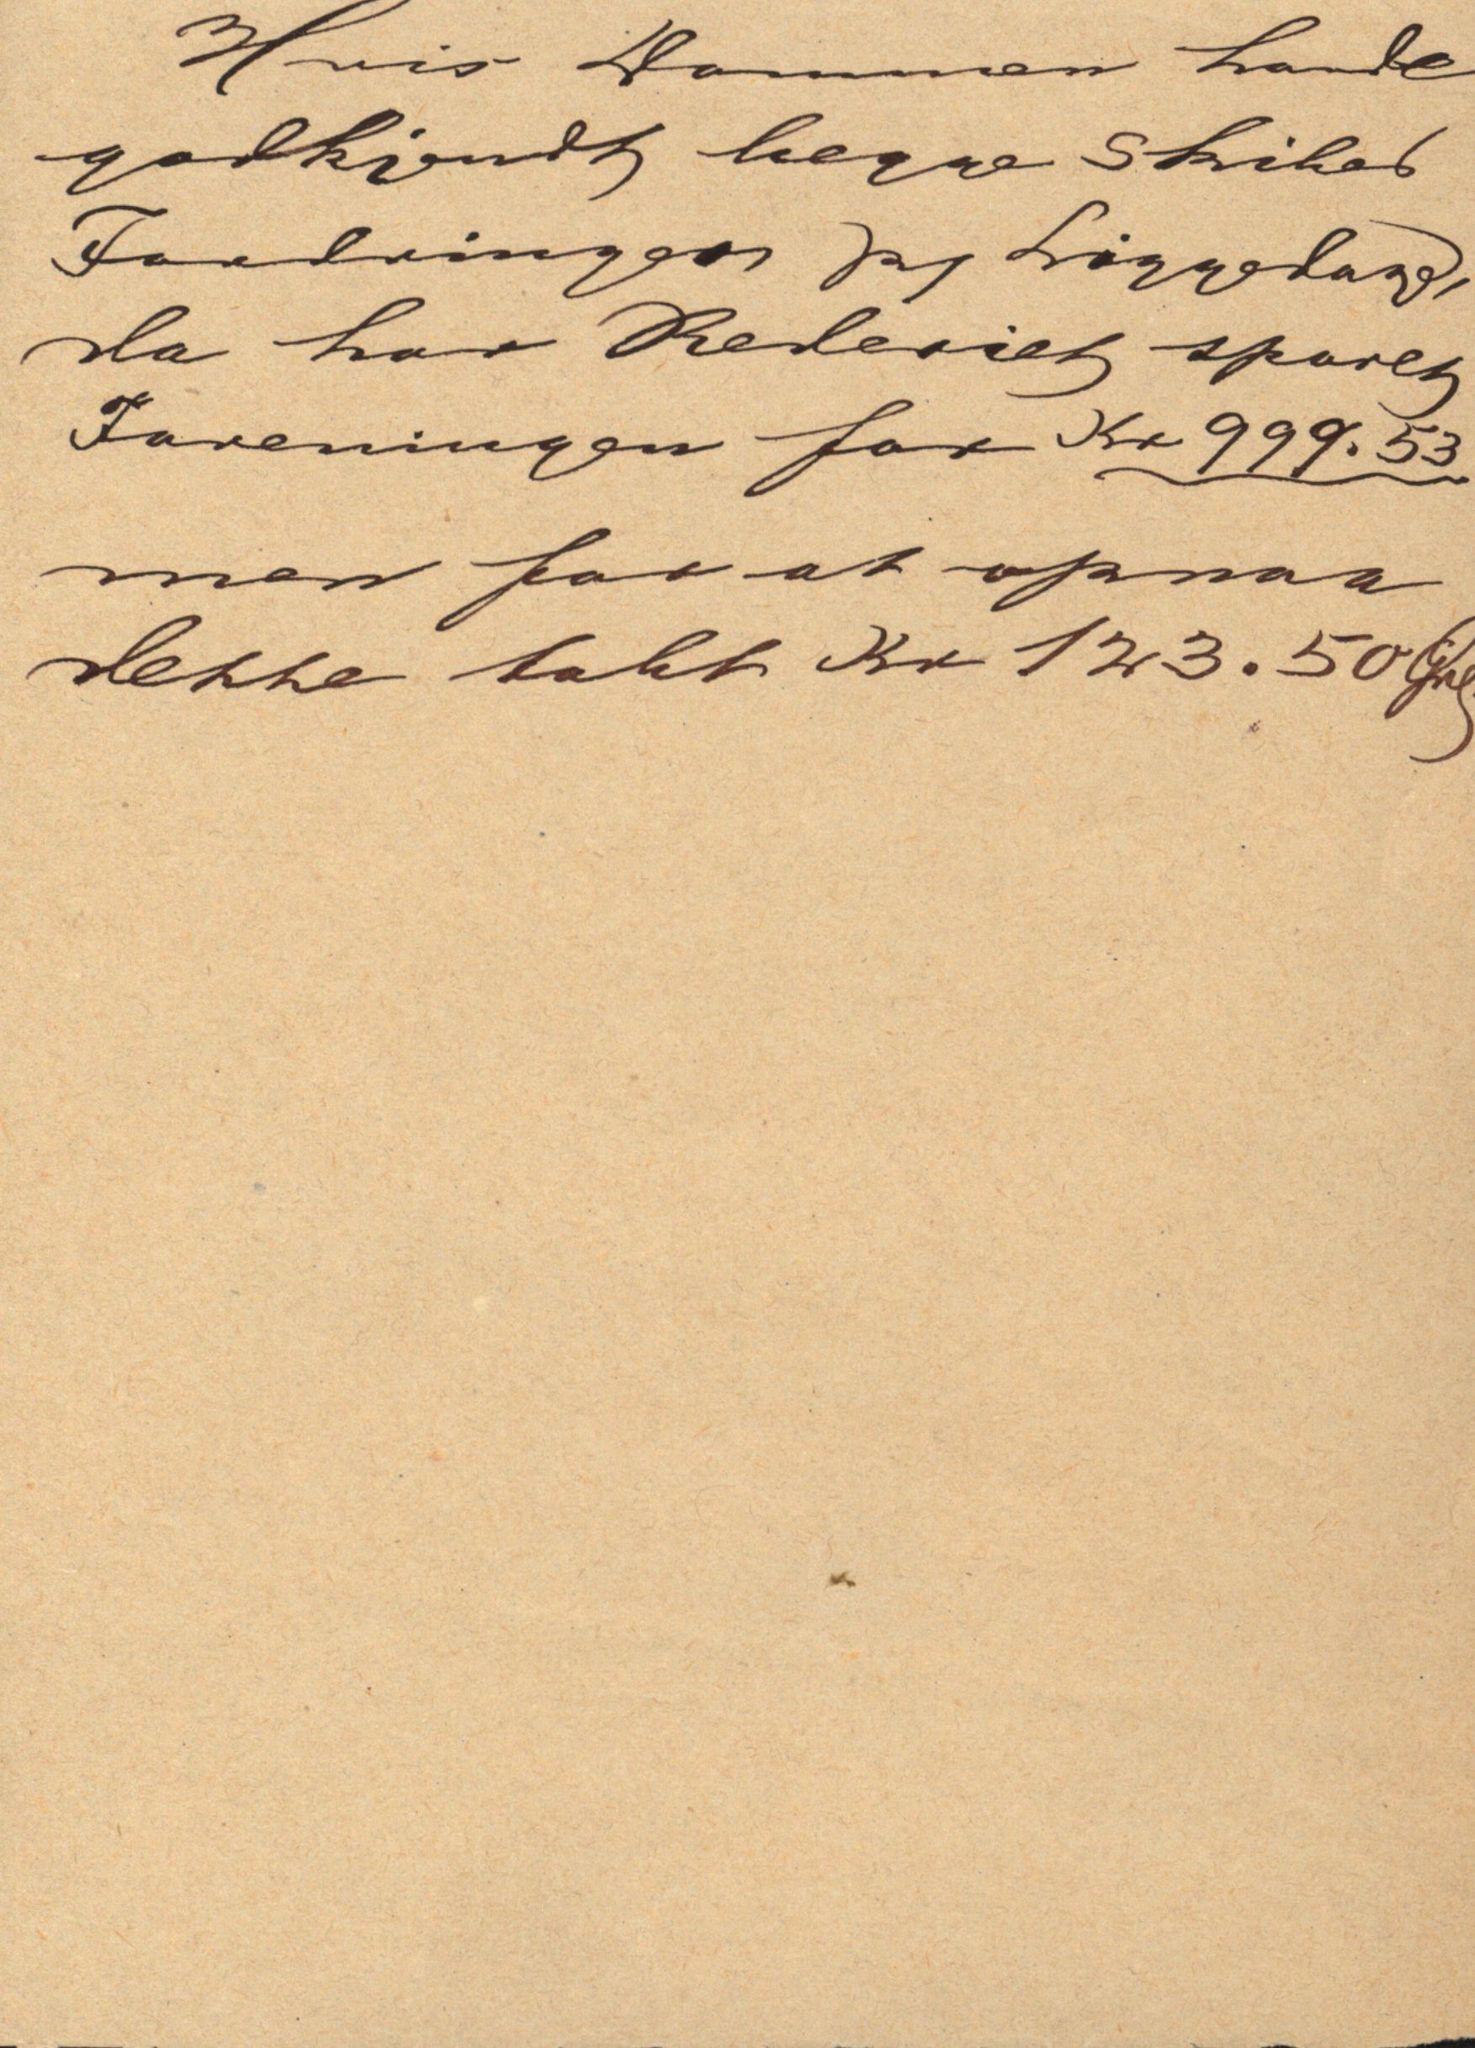 Hvis Dommen havde
godkjendt begge Skibes
Fordringer pr Liggedage,
da har Rederiet sparet
Foreningen for Kr 999.53
men for at opnaa
dette tabt Kr 123.50 Øre